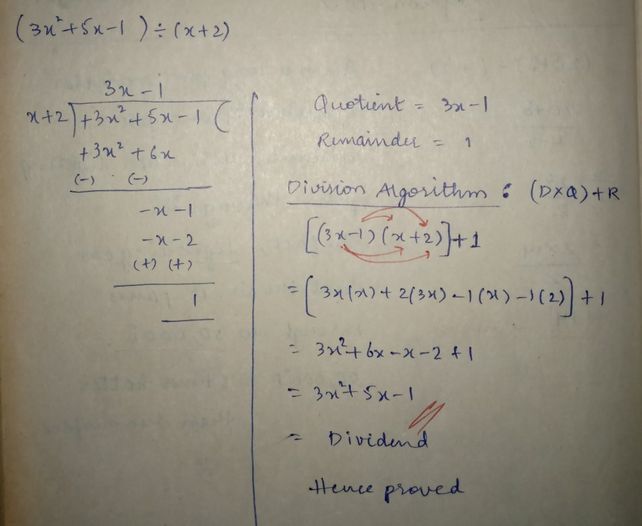 (3x²+5x-1) ÷ (x+2)
3x - 1
x+2)+3x²+5x-1(
+3x²+6x
(-) (-)
-x-1
-x-2
(+) (+)
1
Quotient = 3x-1
Remainder = 1
Division Algorithm : (D×Q)+R
[(3x-1)(x+2)]+1
= [3x(x)+2(3x)-1(x)-1(2)]+1
= 3x²+6x-x-2+1
= 3x²+5x-1
= Dividend
Hence proved